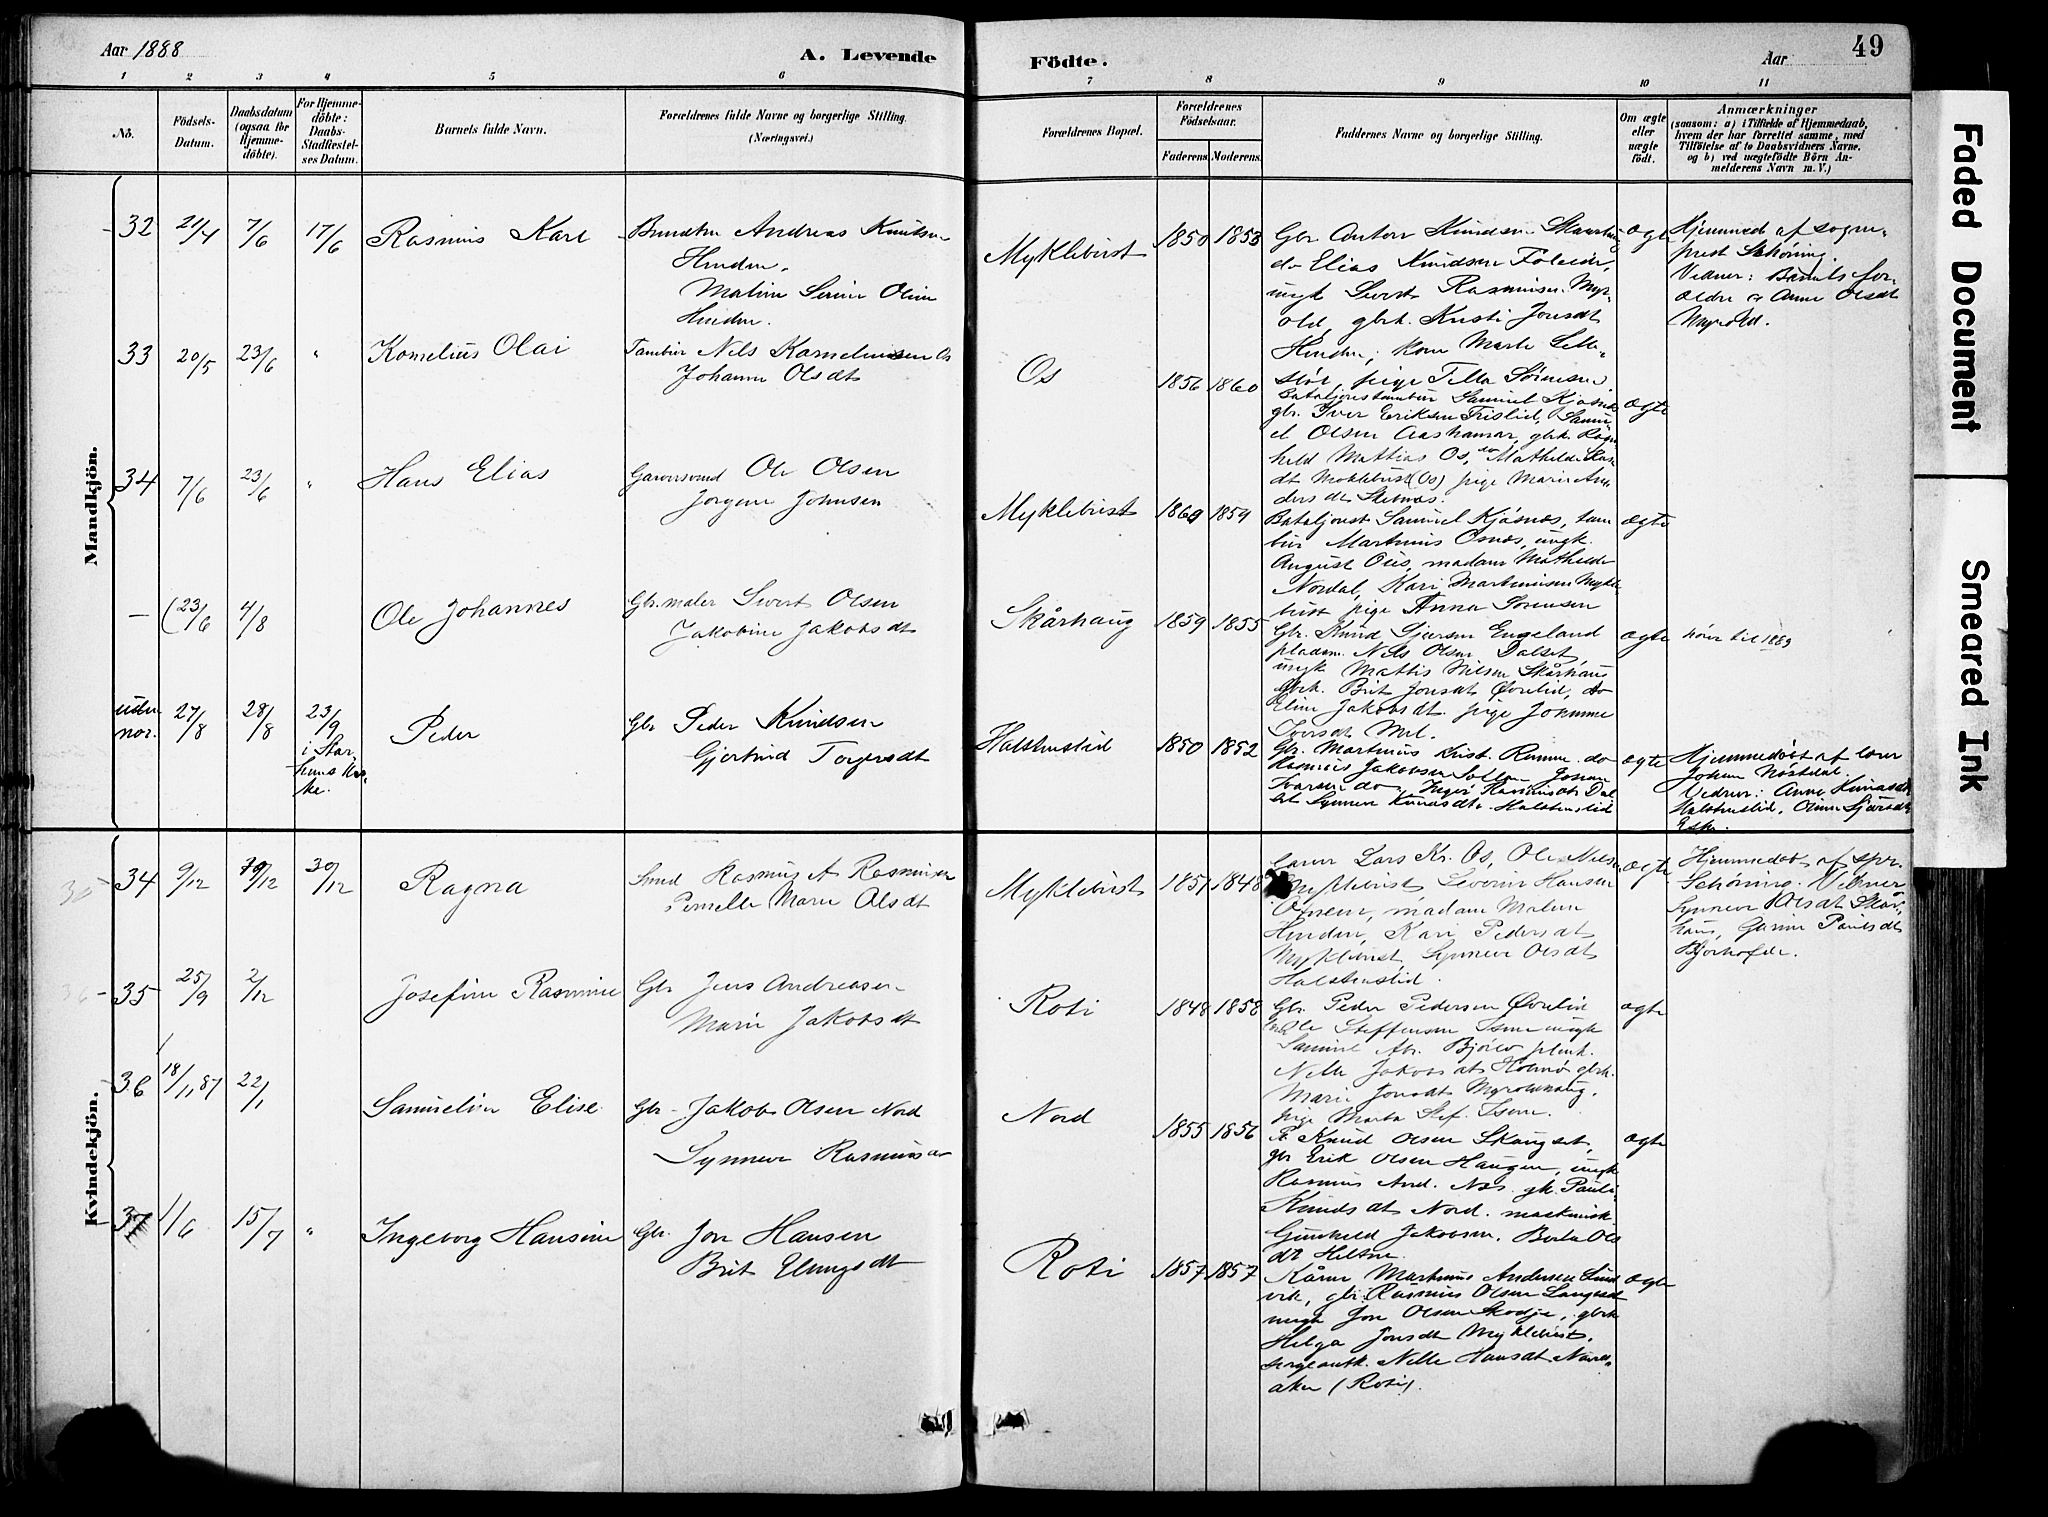 Aar 1888
A. Levende Födte.
Aar
49
1 2 3 4 5 6 7 8 9 10 11
No.
Födsels-Datum.
Daabsdatum (ogsaa for Hjemme-döbte).
For Hjemme-döbte: Daabs-Stadfæstel-ses Datum.
Barnets fulde Navn.
Forældrenes fulde Navne og borgerlige Stilling. (Næringsvei.)
Forældrenes Bopæl.
Forældrenes Födselsaar.
Faderens. Moderens.
Faddernes Navne og borgerlige Stilling.
Om ægte eller uægte födt.
Anmærkninger
(saasom: a) i Tilfælde af Hjemmedaab,
hvem der har forrettet samme, med
Tilföielse af to Daabsvidners Navne.
og b) ved uægtefödte Börn An-
melderens Navn m. V.)
Mandkjön.
32 21/4 7/6 17/6 Rasmus Karl
Andreas Knutsen
Hinden.
Matine Serine Oline
Hinden.
Myklebust 1850 1853
Gbr Anton Knudsen
do Elias Knudsen
ungk Sivert Rasmusen Myr-
old, gbrk. Kristi Jonsdt
Hinden, kone Marte Sille-
stöl, pige Tilla Sörensen.
ægte
Hjemmed af sogne-
prest Schöning.
Vidner: Barnets for-
ældre og Anne Olsdt
Myrold.
33 20/5 23/6 " Kornelius Olai
Tambur Nels Korneliussen Os
Johanne Olsdt
Os 1856 1860
Bataljonstambur Samuel Kjösnes
gbr. Iver Eriksen Frislid, Samu
el Olsen Aashamar, gbrk Ragn
held Mattias Os, do Mathilde
dt Moklebust (Os) pige Marie An
ders dt
ægte
34 7/6 23/6 " Hans Elias
Garversvend Ole Olsen
Jorgine Johnsen
Myklebust 1860 1859
Bataljonst Samuel Kjösnes, tam
bur Martinus Osnes, ungk.
August Otis, madam Mathilde
Nordal, Kari Martinusen Mykle
bust pige Anna Sorensen
ægte
— (23/6 4/8 Ole Johannes
Gbr. maler Sivert Olsen
Jakobine Jakobsdt
Skårhaug 1859 1855
Gbr. Knud Sjursen Engeland
pladsm. Nils Olsen Dalset
ungk Mattis Nilsen Skårhaug
gbrk. Brit Jonsdt Øvrelid, do
Eline Jakobsdt. pige Johanne
Iversdt Mel.
ægte
hörer til 1889
uden nor. 27/8 28/8 23/9 i Star-hens Kir-ke.
Peder
Gbr Peder Knudsen
Gjertrud Torgersdt
Halstenslid 1850 1852
Gbr. Martinus Krist. Remme. do
Rasmus Jakobsen
Ivarsen do, Inger Rasmusdt Dal
set Synneve Knudsdt. Halstenslid
ægte
Hjemmedöbt af lærer
Johan Nöstdal.
Vidner: Anne Knudsdt
Halstenslid, Oline Sjursdt
Eske.
Kvindekjön.
35 34 9/12 19/12 30/12 Ragna
Smed Rasmus A Rasmusen
Pernelle Marie Olsdt
Myklebust 1851 1848
Garver Lars Kr. Os, Ole Nilsen
Myklebust Severin Hansen
madam Malene
Hinden, Kari Pedersdt
Myklebust, Synneve Olsdt
Halstenslid.
ægte
Hjemmedöbt af spr.
Schöning. Vidner
Synneve Olsdt Skår-
haug, Gurine Paulsdt
Bjorhofde.
36 35 25/9 2/12 Josefine Rasmine
Gbr Jens Andreasen
Marie Jakobsdt
Roti 1848 1858
Gbr. Peder Pedersen Øvrelid
Ole Steffensen Isene ungk
Samuel Ab. Bjorlo plmk.
Nelle Jakobsdt Holmö gbrk.
Marie Jonsdt Myroldhaug.
pige Marta Stef. Isene.
ægte
36 18/11 87 22/1 Samueline Elise
Gbr. Jakob Olsen Nord
Synneve Rasmusdt
Nord 1855 1856
P. Knud Olsen Skaugset,
gbr Erik Olsen Haugen, ungk
Rasmus And. Nos. gk. Pauli-
Knudsdt Nord. maskinistk
Gunhild Jakobsen. Berta Ols
dt Heltne.
ægte
37 1/6 15/7 " Ingeborg Hansine
Gbr. Jon Hansen
Brit Elingsdt
Roti 1857 1857
Kårm Martinus Andersen Sund
vik, gbr. Rasmus Olsen Langsæt
ungk Jon Olsen Skodje, gbrk
Helga Jonsdt Myklebust.
sergeantk. Nelle Hansdt Naves-
aker (Roti).
ægte
Faded Document
Smeared Ink